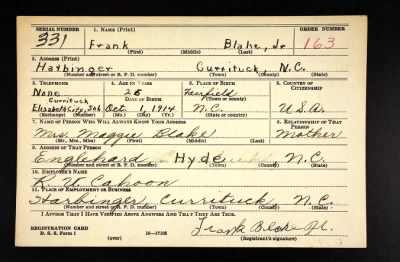 SERIAL NUMBER 1. NAME (Print) ORDER NUMBER
331 Frank Blake, Jr 163
(First) (Middle) (Last)
2. ADDRESS (Print)
Harbinger Currituck, N.C.
(Number and street or R. F. D. number) (Town) (County) (State)
3. TELEPHONE 4. AGE IN YEARS 5. PLACE OF BIRTH 6. COUNTRY OF CITIZENSHIP
None 26 Fairfield
Currituck DATE OF BIRTH (Town or county)
Elizabeth City, Oct 1, 1914 N.C. U.S.A.
(Exchange) (Number) (Mo.) (Day) (Yr.) (State or country)
7. NAME OF PERSON WHO WILL ALWAYS KNOW YOUR ADDRESS 8. RELATIONSHIP OF THAT PERSON
Mrs. Maggie Blake Mother
(Mr., Mrs., Miss) (First) (Middle) (Last)
9. ADDRESS OF THAT PERSON
Englehard Hyde N.C.
(Number and street or R. F. D. number) (Town) (County) (State)
10. EMPLOYER'S NAME
Cahoon
11. PLACE OF EMPLOYMENT OR BUSINESS
Harbinger, Currituck, N.C.
(Number and street or R. F. D. number) (Town) (County) (State)
I AFFIRM THAT I HAVE VERIFIED ABOVE ANSWERS AND THAT THEY ARE TRUE.
REGISTRATION CARD Frank Blake Jr.
D. S. S. Form 1 (over) 16—17105 (Registrant's signature)